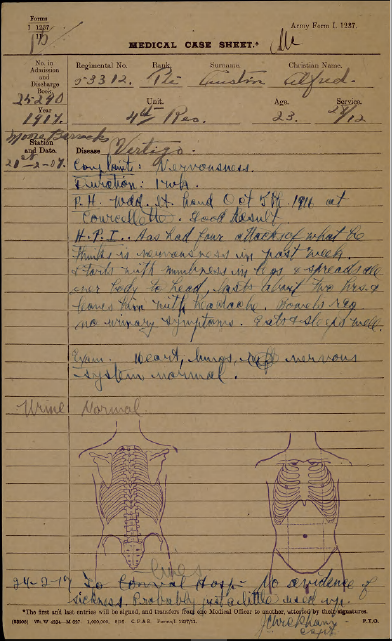 Forms
I 1237
Army Form I. 1237.
MEDICAL CASE SHEET.*
No. in Admission and Discharge Book.
Regimental No.
Rank.
Surname.
Christian Name.
53312. Pte Austin Alfred.
25290
Year
1917.
Unit.
Age.
Service.
4th Res.
23.
28/12
Moore Barracks
Station and Date.
Disease Vertigo.
20-2-07.
Complaint: Nervousness.
Duration: 1 wk.
P.H. Wdd. Lt. hand Oct 5th 1916 at
Courcellette. Good Result
H.P.I.. Has had four attacks of what he
thinks is nervousness in past week
Starts with numbness in legs & spreads all
over body to head, lasts about two hrs &
leaves him with headache. Bowels reg
no urinary symptoms. Eats & sleeps well.
Exam. Heart, lungs, nervous
system normal.
Urine Normal.
24-2-17 To Hosp- No evidence of
sickness. Probably just a little used up.
*The first and last entries will be signed, and transfers from one Medical Officer to another, attested by their signatures.
P.T.O.